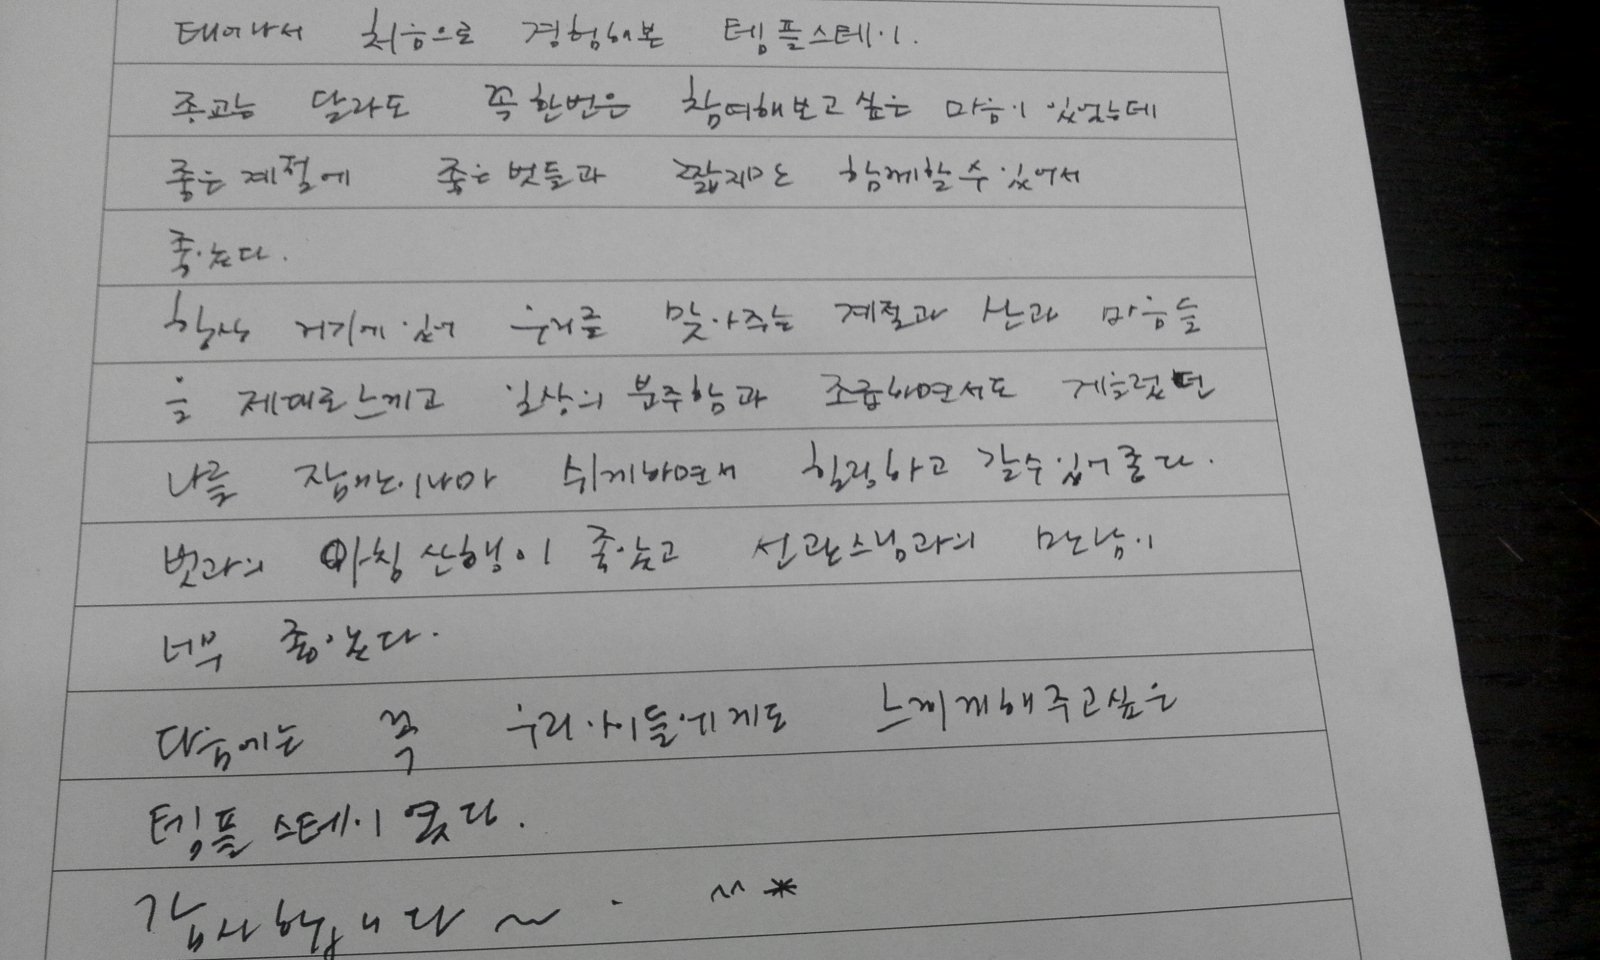 태어나서 처음으로 경험해본 템플스테이.
종교는 달라도 꼭한번은 참여해보고싶은 마음이 있었는데
좋은계절에 좋은벗들과 짧지만 함께할수있어서
좋았다.
항상 거기에있어 우리를 맞아주는 계절과 산과 마음들
을 제대로느끼고 일상의분주함과 조급하면서도 게을렀던
나를 잠깐이나마 쉬게하면서 힐링하고 갈수있어좋다.
벗과의 아침산행이 좋았고 선관스님과의 만남이
너무 좋았다.
다음에는 꼭 우리아이들에게도 느끼게해주고싶은
템플스테이였다.
감사합니다~. ^^*